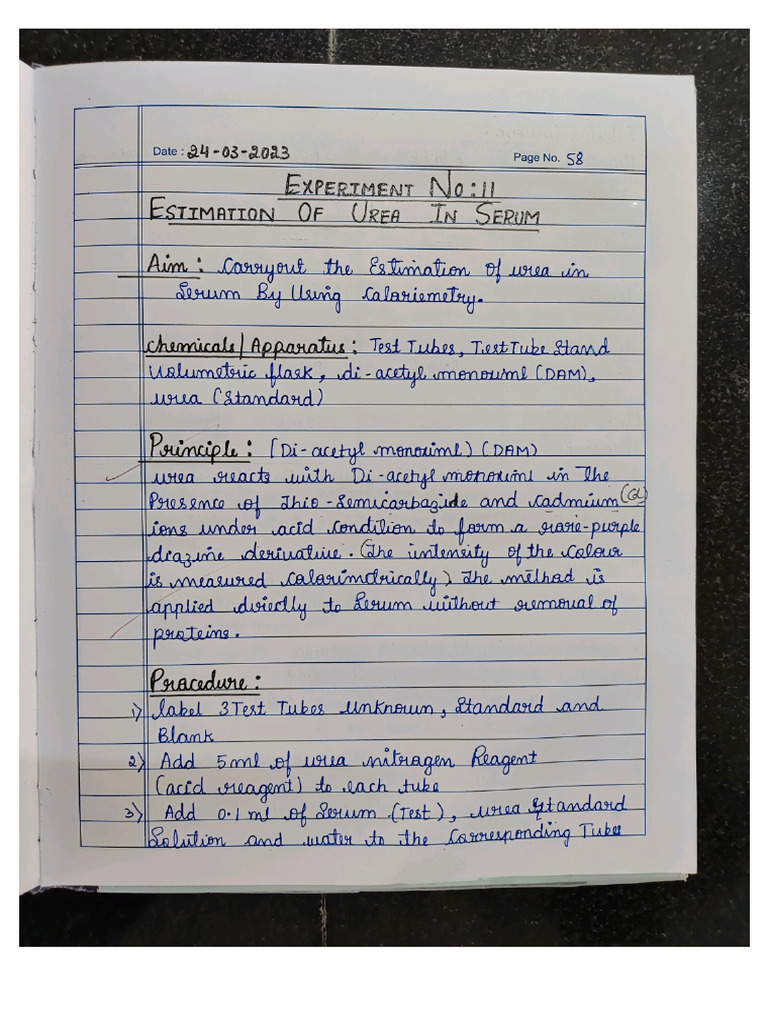 Date : 24-03-2023
Page No. 58
EXPERIMENT NO:11
ESTIMATION OF UREA IN SERUM
Aim : Carryout the Estimation of urea in
Serum By Using Caloriemetry.
Chemicals/Apparatus : Test Tubes, Test Tube Stand
Volumetric flask, di-acetyl monouiml (DAM),
urea (Standard)
Principle : [Di-acetyl monouiml) (DAM)
urea reacts with Di-acetyl monoximl in the
Presence of thio-semicarbazide and cadmium
ions under acid condition to form a rare-purple
diazine derivative. (The intensity of the colour
is measured calorimetrically) The method is
applied directly to Serum without removal of
proteins.
Procedure :
1) label 3 Test Tubes Unknown, Standard and
Blank
2) Add 5ml of urea nitrogen Reagent
(acid reagent) to each tube
3) Add 0.1 ml of Serum (Test), urea Standard
Solution and water to the Corresponding Tubes